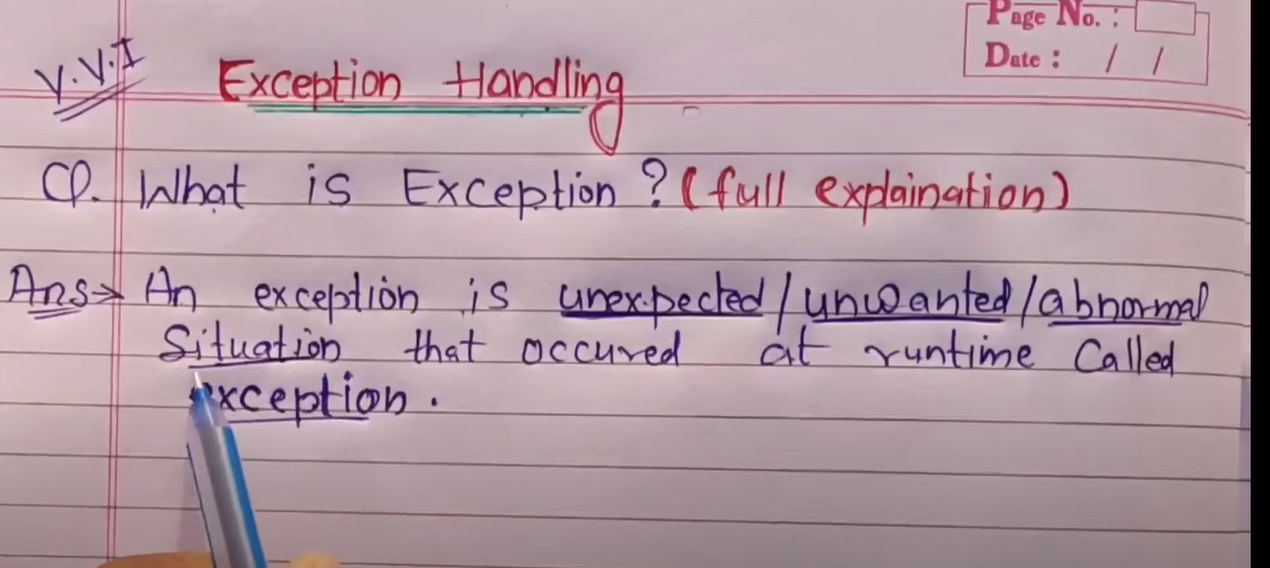 Page No. :
Date : / /
V.V.I
Exception Handling
Q. What is Exception ? (full explaination)
Ans→ An exception is unexpected/unwanted/abnormal
Situation that occured at runtime Called
exception.